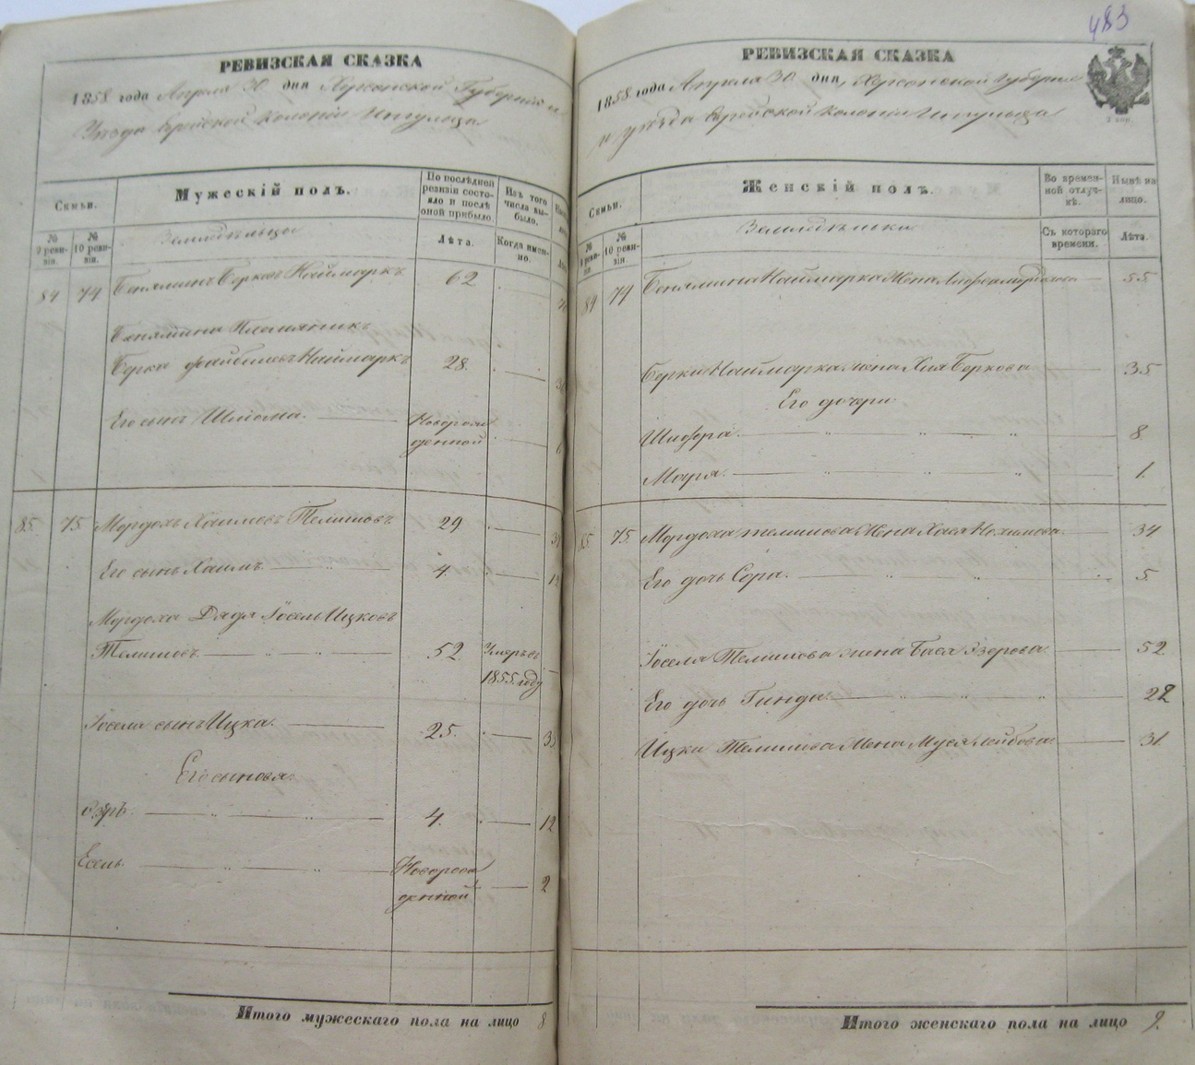 РЕВИЗСКАЯ СКАЗКА
1858 года Апреля 30 дня Херсонской Губерніи и
Уезда Еврейской колоніи Ингульца
Семьи.
Мужескій полъ.
По послѣдней ревизіи состояло и послѣ оной прибыло.
Изъ того числа выбыло.
№ 9 ревизіи.
№ 10 ревизіи.
Земледѣльцы
Лѣта.
Когда именно.
84 74 Беняминъ Берковъ Наймаркъ 62
Бенямина Племяникъ
Берко Файбишевъ Наймаркъ 28.
Его сынъ Шлиома. Новорожденной
85 75 Мордохъ Хаимовъ Телишовъ 29
Его сынъ Хаимъ 4.
Мордоха Дядя Іосель Ицковъ
Телишовъ 52 Умеръ въ 1855 году
Іоселя сынъ Ицка. 25. 3
Его сыновья.
Озръ. 4. 12
Есель. Новорожденной 2
Итого мужескаго пола на лицо 8
483
РЕВИЗСКАЯ СКАЗКА
1858 года Апреля 30 дня, Херсонской Губерніи
и уезда Еврейской колоніи Ингульца
Семьи.
Женскій полъ.
Во временной отлучкѣ.
Нынѣ на лицо.
№ 9 ревизіи
№ 10 ревизіи.
Земледѣльки
Съ котораго времени.
Лѣта.
84 74 Бенямина Наймарка Жена 55
Берки Наймарка жена Хая Беркова 35
Его дочери.
Шифра. 8
Маря. 1.
85 75. Мордоха Телишова Жена Хася Нохимова 34
Его дочь Сора. 5
Іоселя Телишова жена Бася Озерова 52
Его дочь Гинда. 22
Ицки Телишова Жена Муся Лейбова 31.
Итого женскаго пола на лицо 9.